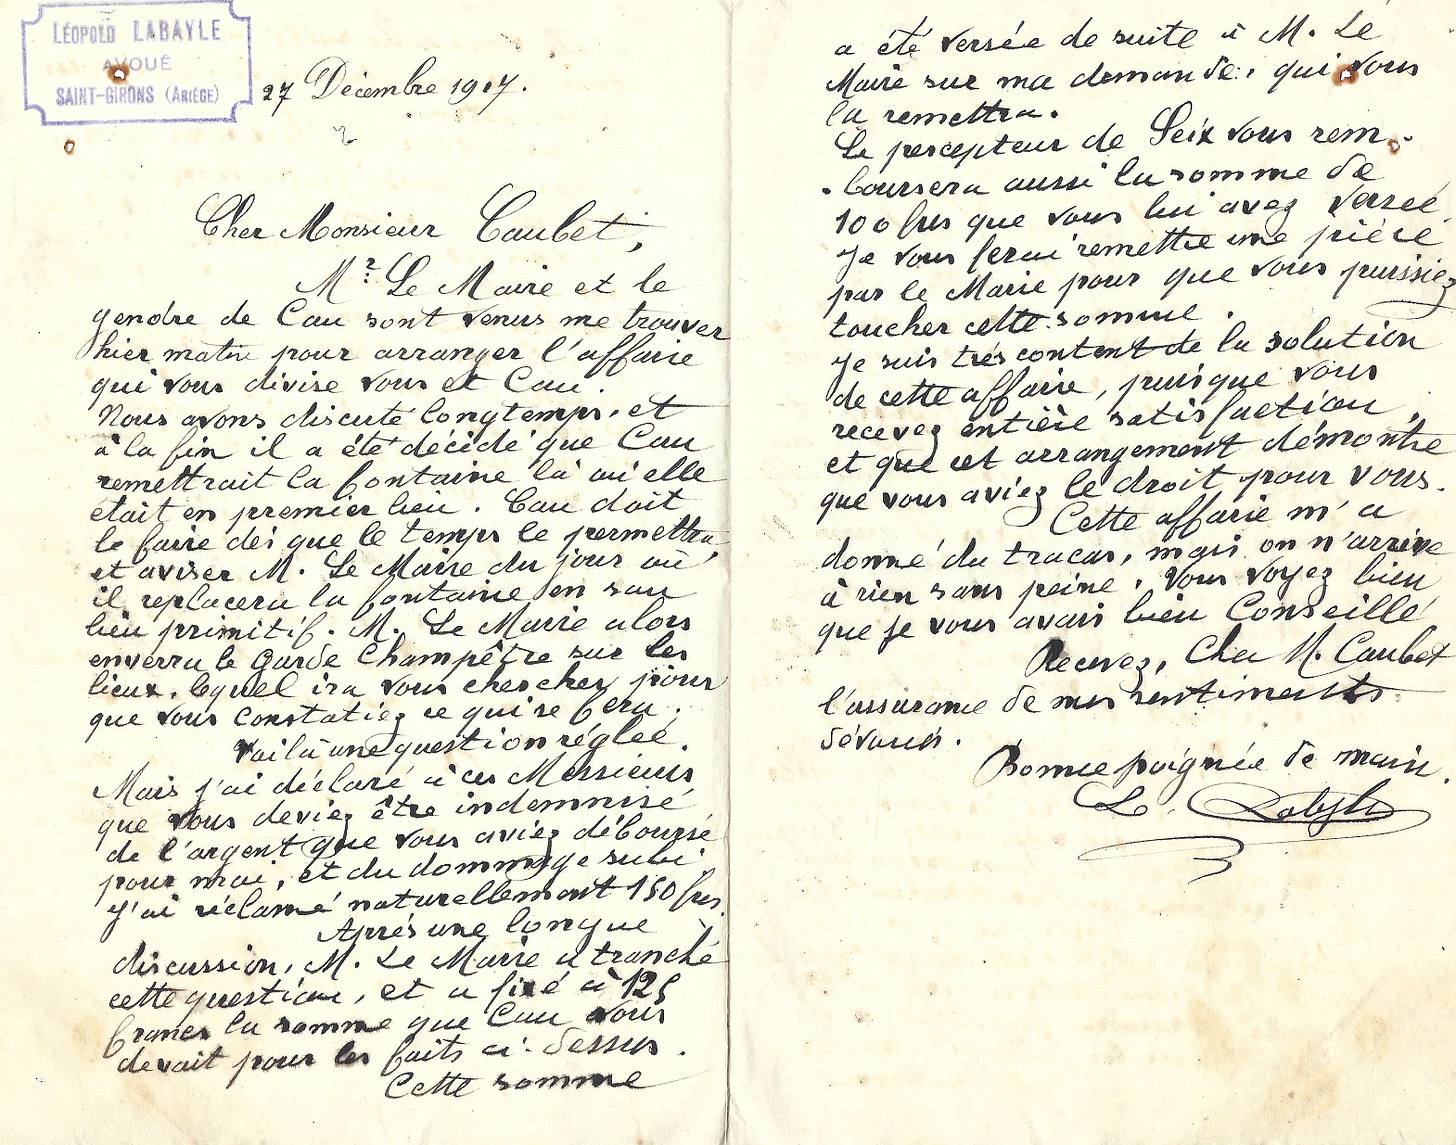 LÉOPOLD LABAYLE
AVOUÉ
SAINT-GIRONS (ARIÈGE)
27 Décembre 1917.
Cher Monsieur Caubet,
Mr. Le Maire et le
gendre de Cau sont venus me trouver
hier matin pour arranger l'affaire
qui vous divise vous et Cau.
Nous avons discuté longtemps, et
à la fin il a été décidé que Cau
remettrait la fontaine là où elle
était en premier lieu. Cau doit
le faire dès que le temps le permettra,
et aviser M. Le Maire du jour où
il replacera la fontaine en son
lieu primitif. M. Le Maire alors
enverra le Garde Champêtre sur les
lieux, lequel ira vous chercher pour
que vous constatiez ce qui se fera.
Voilà une question réglée.
Mais j'ai déclaré à ces Messieurs
que vous deviez être indemnisé
de l'argent que vous aviez déboursé
pour moi, et du dommage subi
J'ai réclamé naturellement 150 frcs.
Après une longue
discussion, M. Le Maire a tranché
cette question, et a fixé à 125
francs la somme que Cau vous
devait pour les faits ci-dessus.
Cette somme
a été versée de suite à M. Le
Maire sur ma demande, qui vous
la remettra.
Le percepteur de Seix vous rem-
-boursera aussi la somme de
100 frcs que vous lui avez versée
Je vous ferai remettre une pièce
par le Maire pour que vous puissiez
toucher cette somme.
Je suis très content de la solution
de cette affaire, puisque vous
recevez entière satisfaction,
et que cet arrangement démontre
que vous aviez le droit pour vous.
Cette affaire m'a
donné du tracas, mais on n'arrive
à rien sans peine. Vous voyez bien
que je vous avais bien Conseillé
Recevez, Cher M. Caubet
l'assurance de mes sentiments
dévoués.
Bonne poignée de main.
L. Labayle